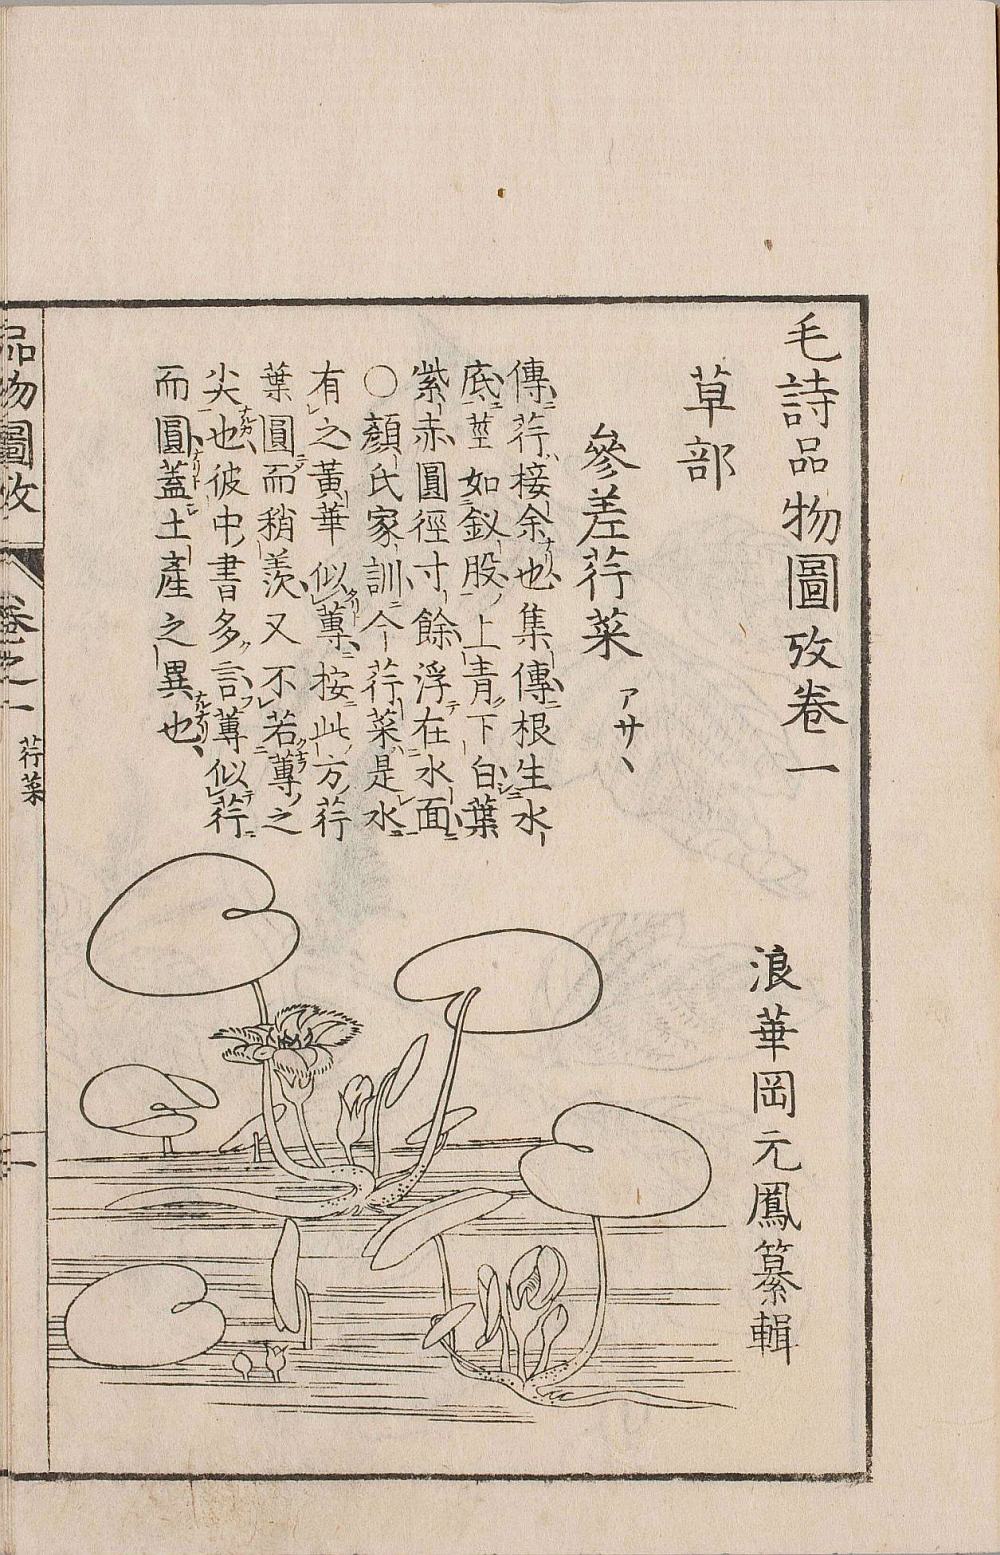 毛詩品物圖攷卷一
浪華岡元鳳纂輯
草部
參差荇菜 アサヽ
傳荇接余也集傳根生水
底莖如釵股上青下白葉
紫赤圓徑寸餘浮在水面
○顏氏家訓今荇菜是水
有之黃華似蓴按此方荇
葉圓而稍羨又不若蓴之
尖也彼中書多言蓴似荇
而圓蓋土產之異也
品物圖攷
卷之一
荇菜
一